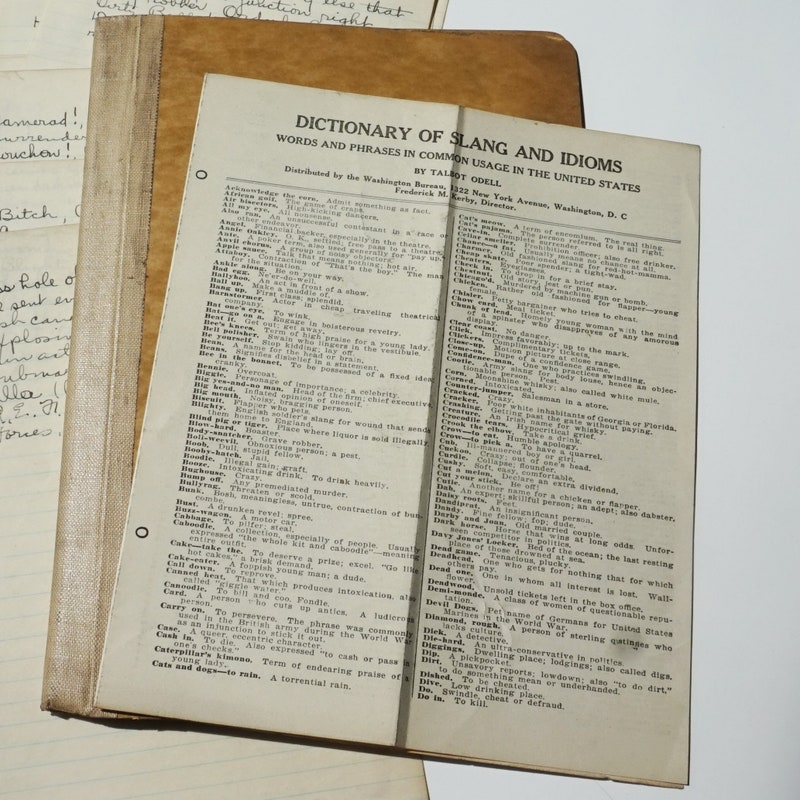 else that
Dirty Robber Junction right
Kamerad!,
Bitch,
hole of
DICTIONARY OF SLANG AND IDIOMS
WORDS AND PHRASES IN COMMON USAGE IN THE UNITED STATES
BY TALBOT ODELL
Distributed by the Washington Bureau, 1322 New York Avenue, Washington, D. C
Frederick M. Kerby, Director.
Acknowledge the corn. Admit something as fact.
African golf. The game of craps.
Air bisectors. High-kicking dancers.
All my eye. All nonsense.
Also ran. An unsuccessful contestant in a race or
other endeavor.
Angel. Financial backer, especially in the theatre.
Annie Oakley. O. K., settled; free pass to a theatre;
Ante. A poker term, also used generally for "pay up."
Anvil chorus. A group of noisy objectors.
Apple sauce. Talk that means nothing; hot air.
Attaboy. Contraction of "That's the boy." The man
for the situation.
Ankle along. Be on your way.
Bad egg. Ne'er-do-well.
Ballyhoo. An act in front of a show.
Ball up. Make a muddle of.
Bang up. First class; splendid.
Barnstormer. Actor in cheap traveling theatrical
company.
Bat one's eye. To wink.
Bat—go on a. Engage in boisterous revelry.
Beat it. Get out; get away.
Bee's knees. Term of high praise for a young lady.
Bell polisher. Swain who lingers in the vestibule.
Be yourself. Stop kidding; lay off.
Bean. A name for the head or brain.
Beans. Signifies disbelief in a statement.
Bee in the bonnet. To be possessed of a fixed idea;
cranky.
Bennie. Overcoat.
Biggie. Personage of importance; a celebrity.
Big yes-and-no man. Head of the firm; chief executive.
Big head. Inflated opinion of oneself.
Big mouth. Noisy, bragging person.
Biscuit. Flapper who pets.
Blighty. English soldier's slang for wound that sends
them home to England.
Blind pig or tiger. Place where liquor is sold illegally.
Blow-hard. Boaster.
Body-snatcher. Grave robber.
Boll-weevil. Obnoxious person; a pest.
Boob. Dull, stupid fellow.
Booby-hatch. Jail.
Boodle. Illegal gain; graft.
Booze. Intoxicating drink. To drink heavily.
Bughouse. Crazy.
Bump off. Any premeditated murder.
Bullyrag. Threaten or scold.
Bunk. Bosh, meaningless, untrue, contraction of bun-
combe.
Bust. A drunken revel; spree.
Buzz-wagon. A motor car.
Cabbage. To pilfer, steal.
Caboodle. A collection, especially of people. Usually
expressed "the whole kit and caboodle"—meaning
entire outfit.
Cake—take the. To deserve a prize; excel. "Go like
hot cakes," a brisk demand.
Cake-eater. A foppish young man; a dude.
Call down. To reprove.
Canned heat. That which produces intoxication, also
called "giggle water."
Canoodle. To bill and coo. Fondle.
Card. A person who cuts up antics. A ludicrous
person.
Carry on. To persevere. The phrase was commonly
used in the British army during the World War
as an injunction to stick it out.
Case. A queer, eccentric character.
Cash in. To die. Also expressed "to cash or pass in
one's checks."
Caterpillar's kimono. Term of endearing praise of a
young lady.
Cats and dogs—to rain. A torrential rain.
Cat's meow. A term of encomium. The real thing.
Cat's pajama. The person referred to is all right.
Cave-in. Complete surrender.
Celing smeller. Prohibition officer; also free drinker.
Chance—fat. Usually means no chance at all.
Charmer—old. Old fashioned slang for red-hot-mamma.
Cheap skate. Poor spender; a tight-wad.
Cheaters. Eyeglasses.
Check in. To drop in for a brief stay.
Chestnut. Old story, jest or pun.
Murdered by machine gun or bomb.
Chicken. Rather old fashioned for flapper—young
female.
Chisler. Petty bargainer who tries to cheat.
Chow card. Meal ticket.
Chunk of lend. Homely young woman with the mind
of a spinster who disapproves of any amorous
display.
Clear coast. No danger.
Click. Impress favorably; up to the mark.
Clinkers. Complimentary tickets.
Close-up. Motion picture at close range.
Come-on. Dupe of a confidence game.
Confidence-man. One who practices swindling.
Cootie. Army slang for body louse, hence an objec-
tionable person. Pest.
Corn. Moonshine whisky; also called white mule.
Corned. Intoxicated.
Counter-jumper. Salesman in a store.
Cracked. Crazy.
Cracker. Poor white inhabitants of Georgia or Florida.
Crashing. Getting past the gate without paying.
Creature. An Irish name for whisky.
Crocodile tears. Hypocritical grief.
Crook the elbow. Take a drink.
Crow—to eat. Humble apology.
Crow—to pick a. To have a quarrel.
Cub. Ill-mannered boy or girl.
Cuckoo. Crazy; out of one's head.
Curdle. Collapse; flounder.
Cushy. Soft, easy, comfortable.
Cut a melon. Declare an extra dividend.
Cut your stick. Be off.
Cutie. Another name for a chicken or flapper.
Dab. An expert; skillful person; an adept; also dabster.
Daisy roots. Feet.
Dandiprat. An insignificant person.
Dandy. Fine fellow; fop; dude.
Darby and Joan. Old married couple.
Dark horse. Horse that wins at long odds. Unfor-
seen competitor in politics.
Davy Jones' Locker. Bed of the ocean; the last resting
place of those drowned at sea.
Dead game. Tenacious, plucky.
Deadhead. One who gets for nothing that for which
others pay.
Dead one. One in whom all interest is lost. Wall-
flower.
Deadwood. Unsold tickets left in the box office.
Demi-monde. A class of women of questionable repu-
tation.
Devil Dogs. Pet name of Germans for United States
Marines in the World War.
Diamond, rough. A person of sterling qualities who
lacks culture.
Dick. A detective.
Die-hard. An ultra-conservative in politics.
Diggings. Dwelling place; lodgings; also called digs.
Dip. A pickpocket.
Dirt. Unsavory reports; lowdown; also "to do dirt,"
to do something mean or underhanded.
Dished. To be cheated.
Dive. Low drinking place.
Do. Swindle, cheat or defraud.
Do in. To kill.